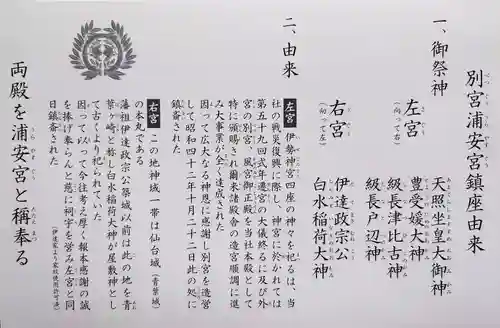 別宮浦安宮鎮座由来
一、御祭神
左宮
(向って右)
天照坐皇大御神
豊受媛大神
級長津比古神
級長戸辺神
右宮
(向って左)
伊達政宗公
白水稲荷大神
二、由来
左宮 伊勢神宮四座の神々を祀るは、当
社の戦災復興に際し、神宮に於かれては
第五十九回式年遷宮の大儀終るに及び外
宮の別宮、風宮御正殿を当社本殿として
特に頒賜され爾来諸殿舎の造宮順調に進
み大事業が全く達成された
因って広大なる神恩に感謝し別宮を造営
して昭和四十二年十月二十二日此の処に
鎮斎された
右宮 この地神域一帯は仙台城(青葉城)
の本丸である
藩祖伊達政宗公築城以前は此の地を青
葉ヶ崎と称し白水稲荷大神が屋敷神とし
て古くより祀られていた
因って以て今往を考え厚く報本感謝の誠
を捧げ奉らんと慈に祠宇を営み左宮と同
日鎮斎された
(伊達家より定紋使用許可済)
両殿を浦安宮と稱奉る